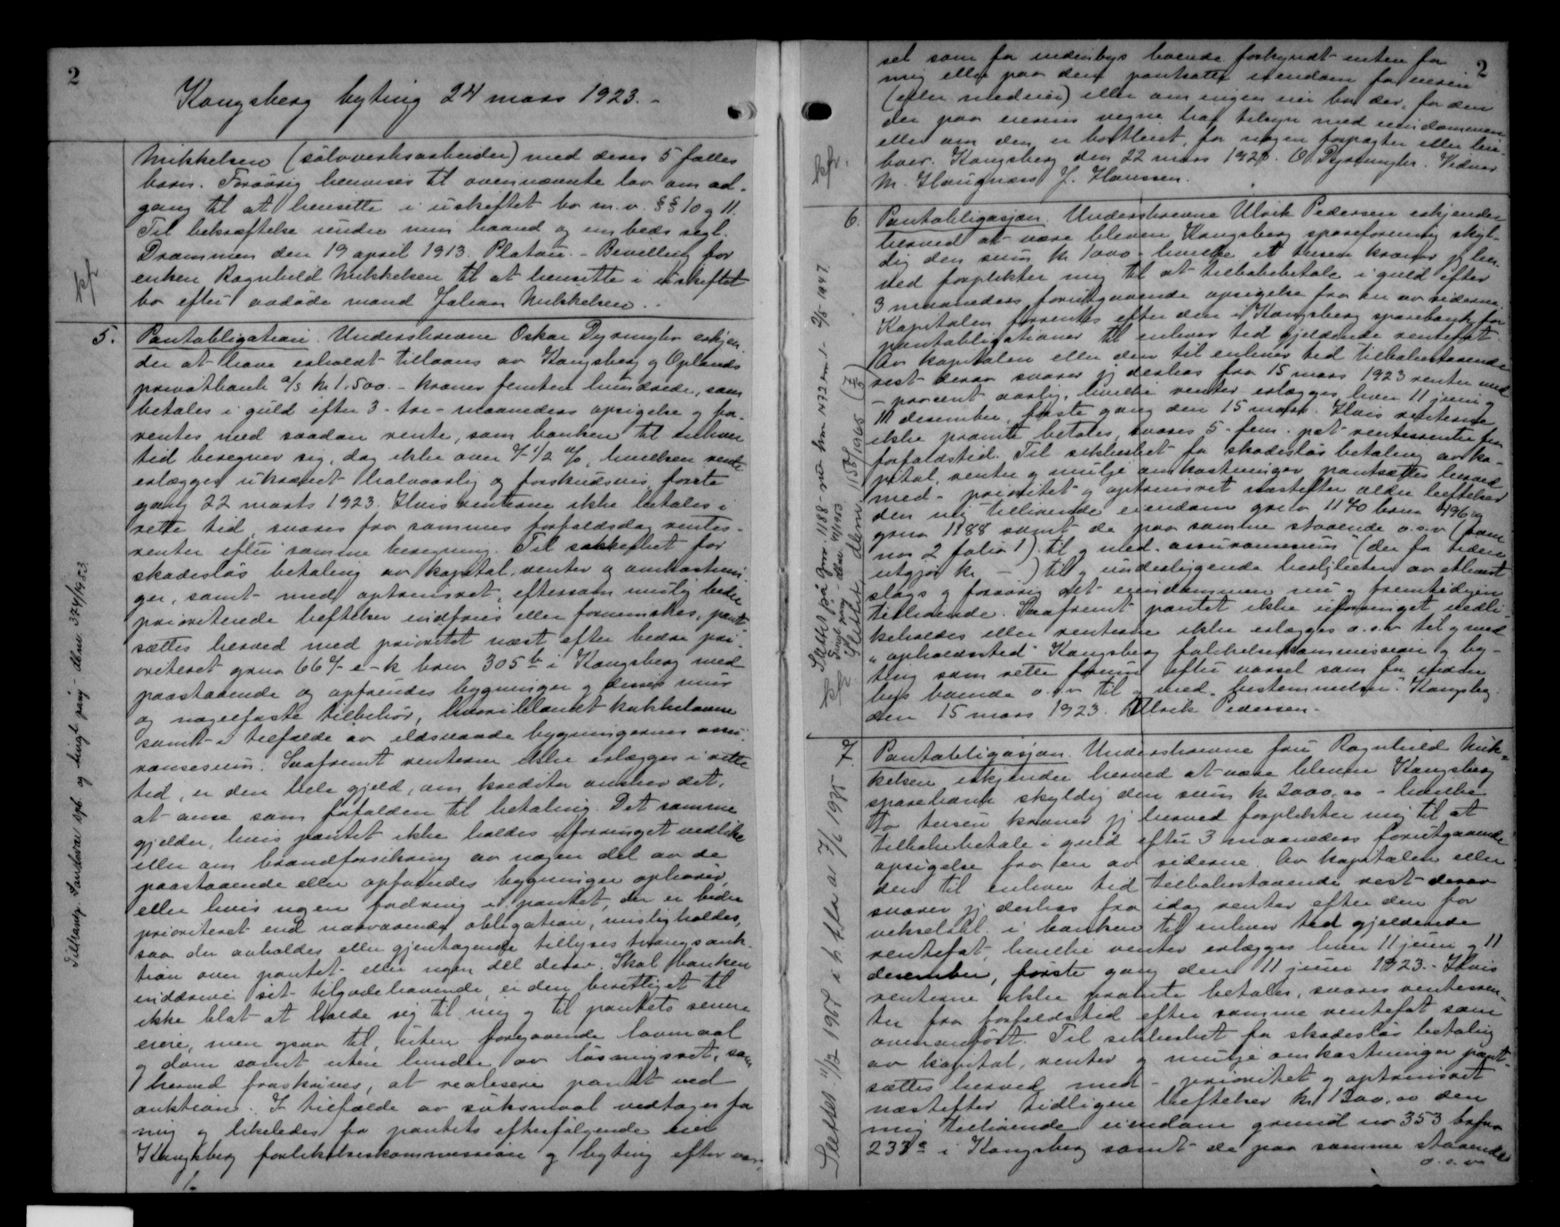 2
Kongsberg byting 24 mars 1923. -
Mikkelsen (sølvverksarbeider) med deres 5 fælles
barn. Forøvrig henvises til ovennævnte lov om ad-
gang til at hensitte i uskiftet bo m.v. §§ 10 og 11.
Til bekræftelse under min haand og embeds segl.
Drammen den 19 april 1913 Platou. - Bevilling for
enken Ragnhild Mikkelsen til at hensitte i uskiftet
bo efter avdøde mand Johan Mikkelsen. -
5. Pantobligation. Underskrevne Oskar Dysmyhr erkjen-
der at have erholdt tillaans av Kongsberg og Oplands
privatbank a/s kr 1.500. - kroner femten hundrede, som
betales i guld efter 3 - tre - maaneders opsigelse og for-
rentes med saadan rente, som banken til enhver
tid beregner sig, dog ikke over 7 1/2 %, hvilken rente
erlægges ukrævet halvaarlig og forskudsvis, første
gang 22 marts 1923. Hvis renterne ikke betales i
rette tid, svares fra sammes forfaldsdag rentes-
renter efter samme beregning. Til sikkerhet for
skadesløs betaling av kapital, renter og omkostnin-
ger, samt med optrinsret, eftersom mulig bedre
prioriterede heftelser indfries eller formindskes, pant-
sættes herved med prioritet næst efter bedre pri-
oriteret grno 66 e-k brno 305 b i Kongsberg med
paastaaende og opførendes bygninger og disses mur
og nagelfaste tilbehør, hvoriblandt kakkelovne
samt i tilfælde av ildsvaade bygningernes assu-
ransesum. Saafremt renterne ikke erlægges i rette
tid, er den hele gjeld, om kreditor ønsker det,
at anse som forfalden til betaling. Det samme
gjelder, hvis pantet ikke holdes uforringet vedlike
eller om brandforsikring av nogen del av de
paastaaende eller opførendes bygninger ophører,
eller hvis nogen fordring i pantet, der er bedre
prioriteret end nærværende obligation, misligholdes,
saa der avholdes eller gjentagende tillyses tvangsauk-
tion over pantet eller nogen del derav. Skal banken
inddrive sit tilgodehavende, er den berettiget til
ikke blot at holde sig til mig og til pantets senere
eiere, men ogsaa til, uten foregaaende lovmaal
og dom samt uten hinder av løsningsret, som
herved fraskrives, at realisere pantet ved
auktion. I tilfælde av søksmaal vedtages for
mig og likeledes for pantets efterfølgende eier
Kongsberg forlikelseskommission og byting efter var-
Tilhang. Sandsvær spb. og tingl. påny - dbnr. 374/1953
2
sel som for indenbys boende forkyndt enten for
mig eller paa den pantsatte eiendom for eieren
(eller medeier) eller om ingen eier bor der, for den
der paa eierens vegne har tilsyn med eiendommen
eller om den er bortleiet, for nogen forpagter eller leie-
boer. Kongsberg den 22 mars 1923. O. Dysmyhr. Vidner
M. Haugnæss J. Hanssen.
6. Pantobligasjon. Underskrevne Ulrik Pedersen erkjender
herved at være bleven Kongsberg spareforening skyl-
dig den sum kr 1000 - hvilke et tusen kroner jeg her-
ved forplikter mig til at tilbakebetale i guld efter
3 maaneders forutgaaende opsigelse fra en av siderne.
Kapitalen forrentes efter den i Kongsberg sparebank for
pantobligationer til enhver tid gjeldende rentefot.
Av kapitalen eller den til enhver tid tilbakestaaende
rest derav svarer jeg desaarsak fra 15 mars 1923 renter med
- procent aarlig, hvilke renter erlægges hver 11 juni og
11 desember, første gang den 15 mars. Hvis renterne
ikke promte betales, svares 5 - fem - pct rentesrenter fra
forfaldstid. Til sikkerhet for skadesløs betaling av ka-
pital, renter og mulige omkostninger pantsættes herved
med - prioritet og optrinsret næstefter ældre heftelser
den mig tilhørende eiendom grno 1140 brno 496 og
grno 1188 samt de paa samme staaende o.s.v. (som
no 2 folio 1) til og med assuransesum (der for tiden
utgjør kr - ) til og underliggende herligheter av ethvert
slags og forøvrig alt eiendommen nu og fremtidigen
tilhørende. Saafremt pantet ikke uforringet vedli-
keholdes eller renterne ikke erlægges o.s.v. til og med
"opholdssted" Kongsberg forlikelseskommission og by-
ting som rette forum efter varsel som for inden-
bys boende o.s.v. til og med "bestemmelser". Kongsberg
den 15 mars 1923. Ulrik Pedersen. -
7. Pantobligasjon. Underskrevne fru Ragnhild Mik-
kelsen erkjender herved at være bleven Kongsberg
sparebank skyldig den sum kr 2000,00 - hvilke
to tusen kroner jeg herved forplikter mig til at
tilbakebetale i guld efter 3 maaneders forutgaaende
opsigelse fra en av siderne. Av kapitalen eller
den til enhver tid tilbakestaaende rest derav
svarer jeg desaarsak fra idag renter efter den for
veksellaan i banken til enhver tid gjeldende
rentefot, hvilke renter erlægges hver 11 juni og 11
desember, første gang den 11 juni 1923. - Hvis
renterne ikke promte betales, svares rentesren-
ter fra forfaldstid efter samme rentefot som
ovenanført. Til sikkerhet for skadesløs betaling
av kapital, renter og mulige omkostninger pant-
sættes herved med - prioritet og optrinsret
næstefter tidligere heftelser kr 1300,00 den
mig tilhørende eiendom grund no 353 brno
233 a i Kongsberg samt de paa samme staaende
o.s.v.
Slettet dbnr 1158/1965